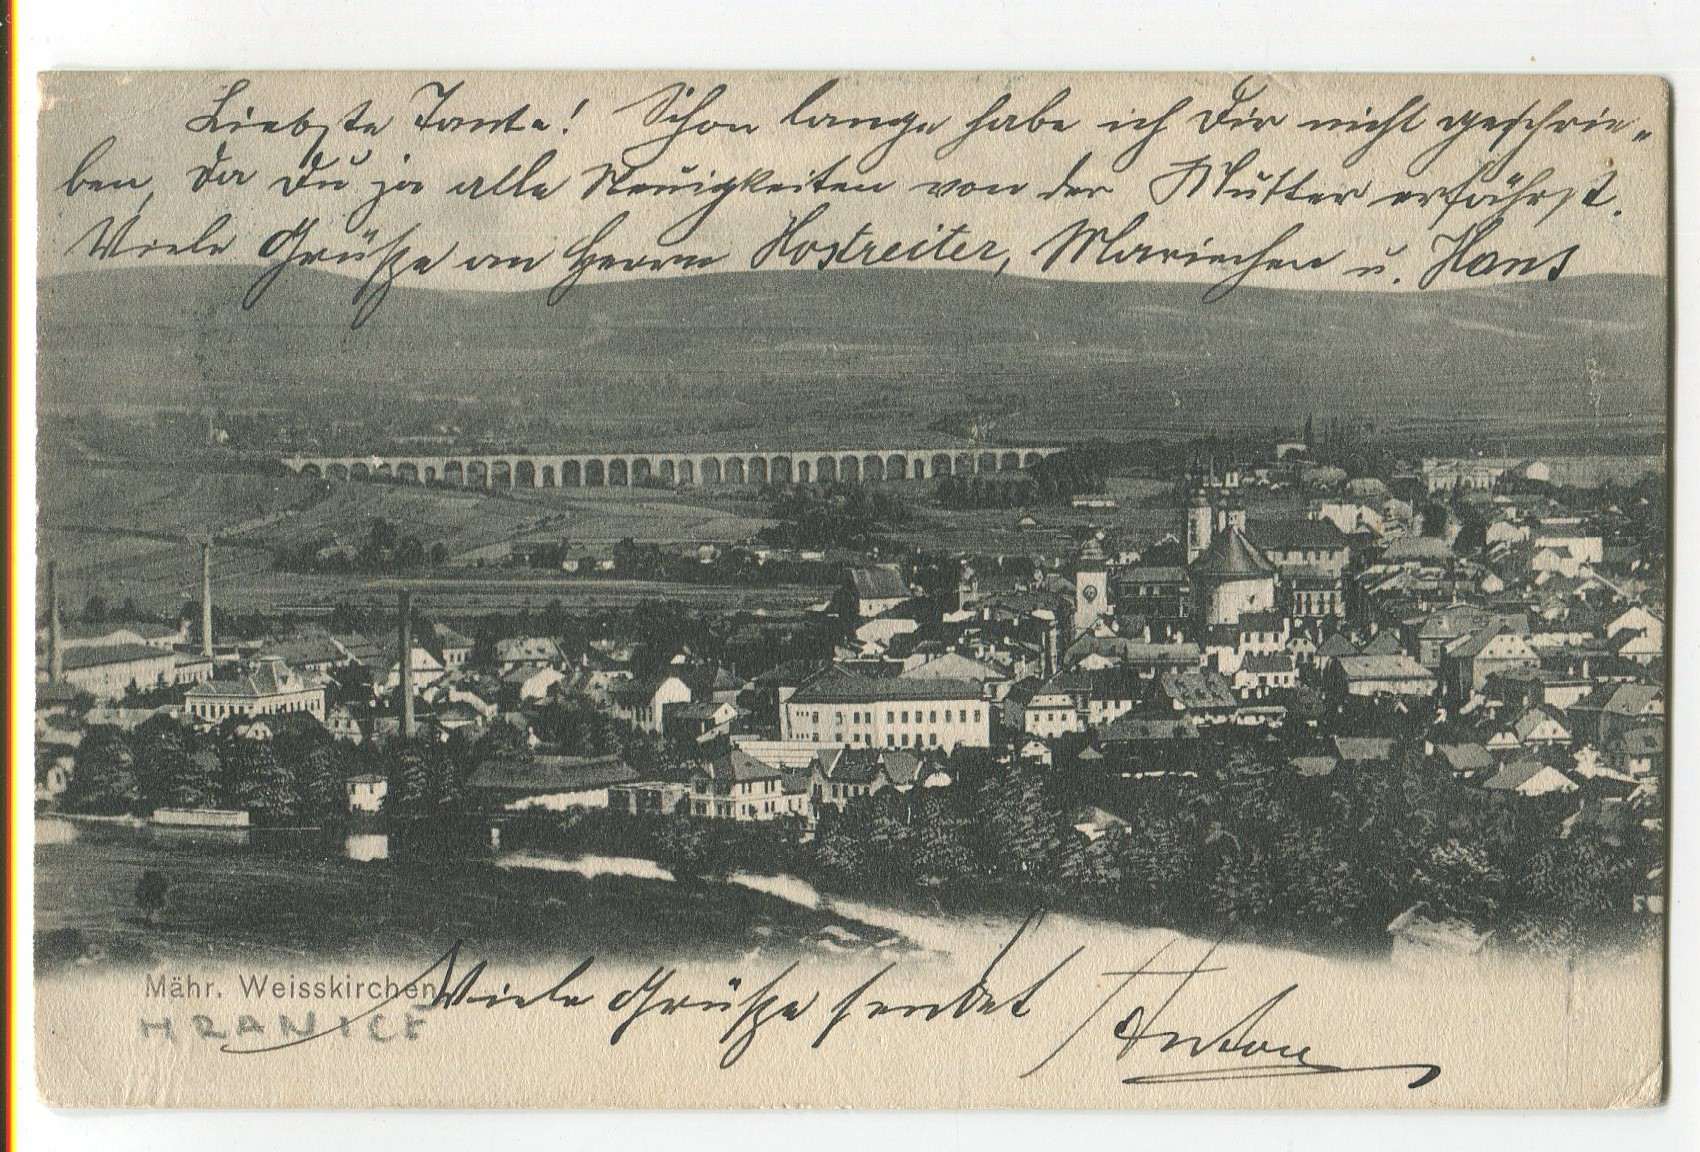 Liebste Tante! Schon lange habe ich Dir nicht geschrie-
ben, da Du ja alle Neuigkeiten von der Mutter erfährst.
Viele Grüße an Herrn Hostreiter, Mariechen u. Hans
Mähr. Weisskirchen
Viele Grüße sendet Anton
HRANICE